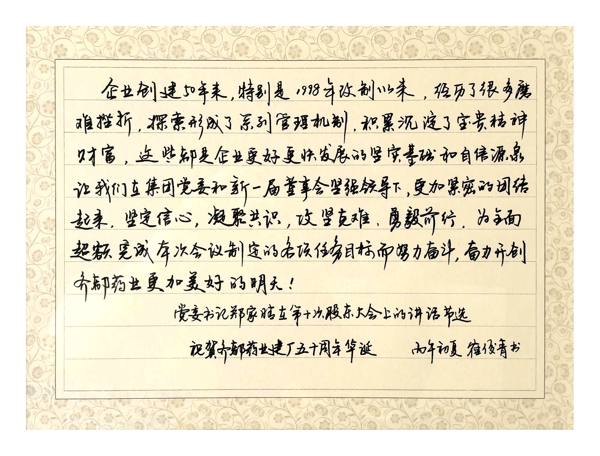 企业创建50年来，特别是1998年改制以来，经历了很多磨
难挫折，探索形成了系列管理机制，积累沉淀了宝贵精神
财富，这些都是企业更好更快发展的坚实基础和自信源泉
让我们在集团党委和新一届董事会坚强领导下，更加紧密的团结
起来，坚定信心，凝聚共识，攻坚克难，勇毅前行，为全面
超额完成本次会议制定的各项任务目标而努力奋斗，奋力开创
齐都药业更加美好的明天！
党委书记郑家晴在第十次股东大会上的讲话节选
祝贺齐都药业建厂五十周年华诞 丙午初夏 崔俊青书